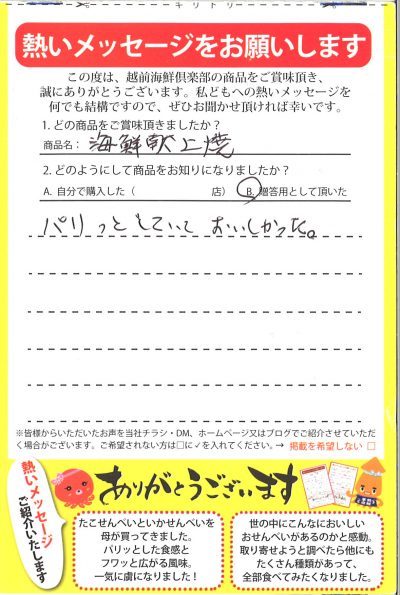 キリトリ
熱いメッセージをお願いします
この度は、越前海鮮倶楽部の商品をご賞味頂き、
誠にありがとうございます。私どもへの熱いメッセージを
何でも結構ですので、ぜひお聞かせ頂ければ幸いです。
1. どの商品をご賞味頂きましたか？
商品名： 海鮮献上焼
2. どのようにして商品をお知りになりましたか？
A. 自分で購入した（　　　　　店） B. 贈答用として頂いた
パリっとしていて おいしかった。
※皆様からいただいたお声を当社チラシ・DM、ホームページ又はブログでご紹介させていただ
く場合がございます。ご希望されない方は□に✓を入れてください。→ 掲載を希望しない □
熱いメッセージ
ご紹介いたします
ありがとうございます
たこせんべいといかせんべいを
母が買ってきました。
パリッとした食感と
フワッと広がる風味。
一気に虜になりました！
世の中にこんなにおいしい
おせんべいがあるのかと感動。
取り寄せようと調べたら他にも
たくさん種類があって、
全部食べてみたくなりました。